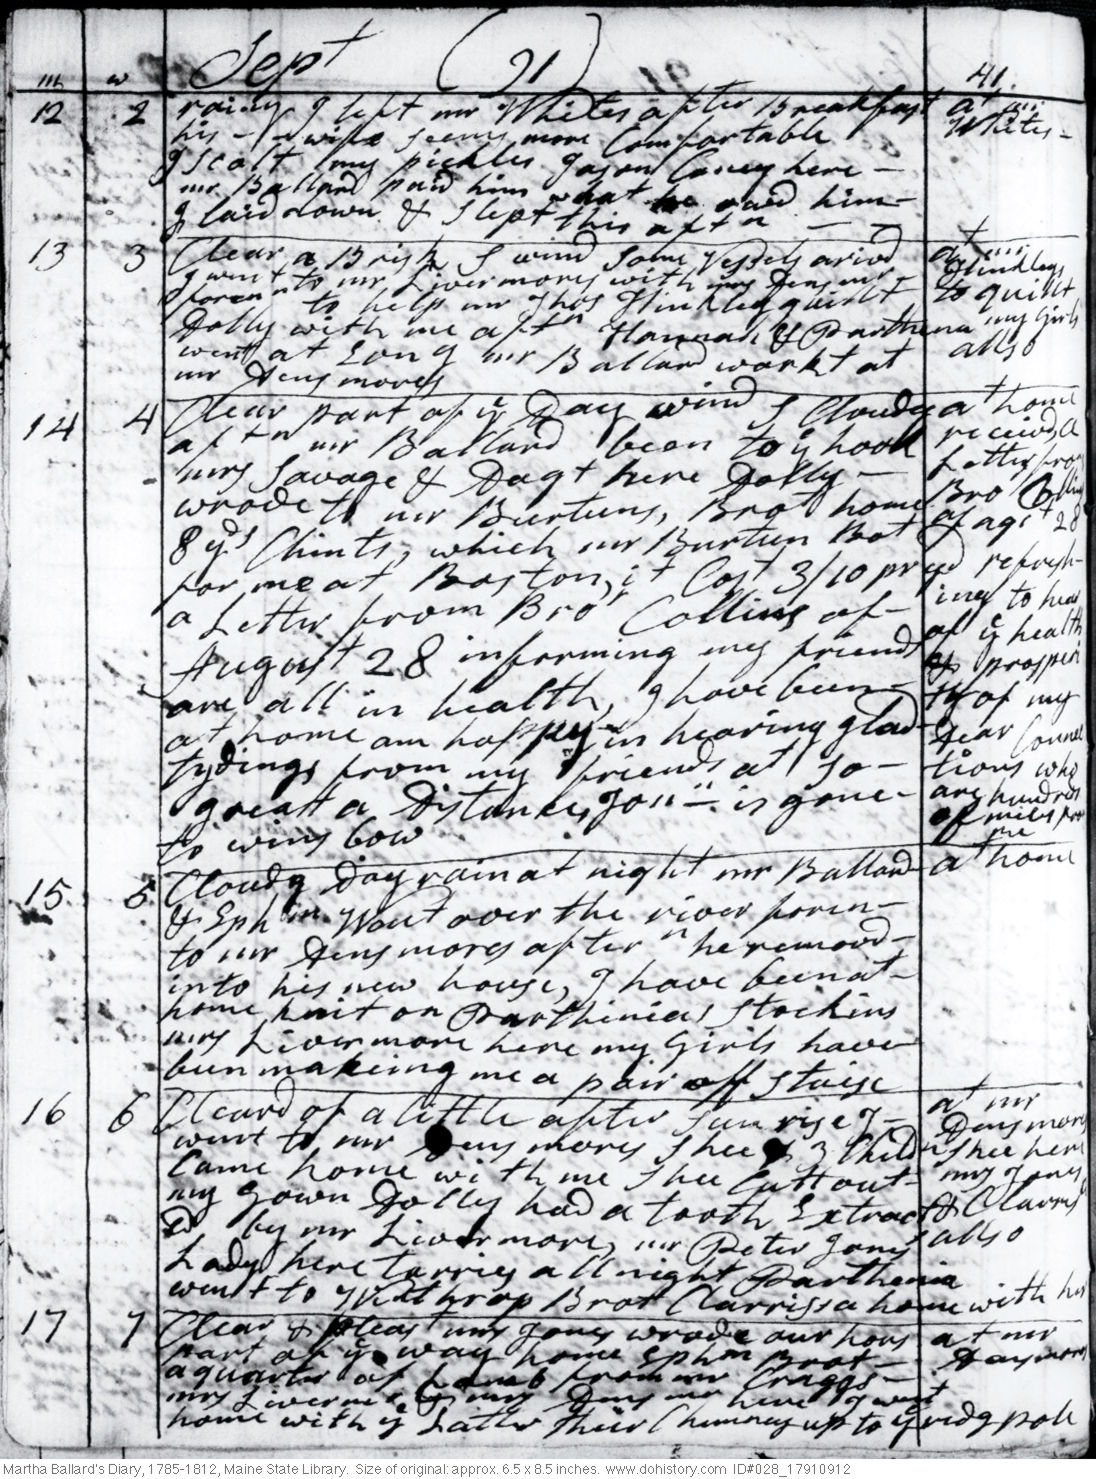 Sept (91) 41.
m w
12 2 rainy I left mr Whites after Breakfast at mr
his wife seems more Comfortable Whites -
I Scolt my pickles Jason Cowey here -
mr Ballard paid him what he owd him -
I laid down & Slept this aftn
13 3 Clear a Brisk S wind Some Vessels arivd at mr
I went to mr Livermores with mrs Densmr Hinkleys
foren to help mr Thos Hinkley quilt to quilt
Dolly with me aftn Hannah & Parthena my Girls
went at Eong mr Ballard workt at allso
mr Densmores
14 4 Clear part of ye Day wind S Cloudy at home
aftn mr Ballard been to ye hook receivd a
mrs Savage & Dagt here Dolly - Letter from
wrode to mr Burtuns, Brot home Bro Collins
8 yds Chints, which mr Burtun Bot of agst 28
for me at Boston, it Cost 3/10 pr yd refresh-
a Letter from Bror Collins of - ing to hear
August 28 informing my friends of ye health
are all in health, I have been - & prosperi
at home am happy in hearing glad- ty of my
tydings from my friends at so - Dear Connec
great a Distance, Jonn is gone - tions who
to wins low are hundreds
of miles from
me
15 5 Cloudy Day rain at night mr Ballard at home
& Ephm Went over the river foren -
to mr Densmores after n he remood -
into his new house, I have been at -
home knit on Parthinias Stockins
mrs Livermore here my Girls have
been makeing me a pair off Staise
16 6 Cleard of a little after Sun rise I - at mr
went to mr Densmores Shee & 3 Childn Densmores
Came home with me Shee Cutt out - Shee here
my gown Dolly had a tooth Extract mrs Jones
ed by mr Livermore, mr Peter Jones & Clariss
Lady here tarries all night Parthenia allso
went to Winthrop Brot Clarrissa home with her
17 7 Clear & pleast mrs Jones wrode our hors at mr
part of ye way home Ephm Brot - Densmores
a quarter of Lamb from mr Craggs -
mrs Livermore & mrs Densmr here I went
home with ye Latter their Chimney up to ye ridg pole
Martha Ballard's Diary, 1785-1812, Maine State Library. Size of original: approx. 6.5 x 8.5 inches. www.dohistory.com ID#028_17910912